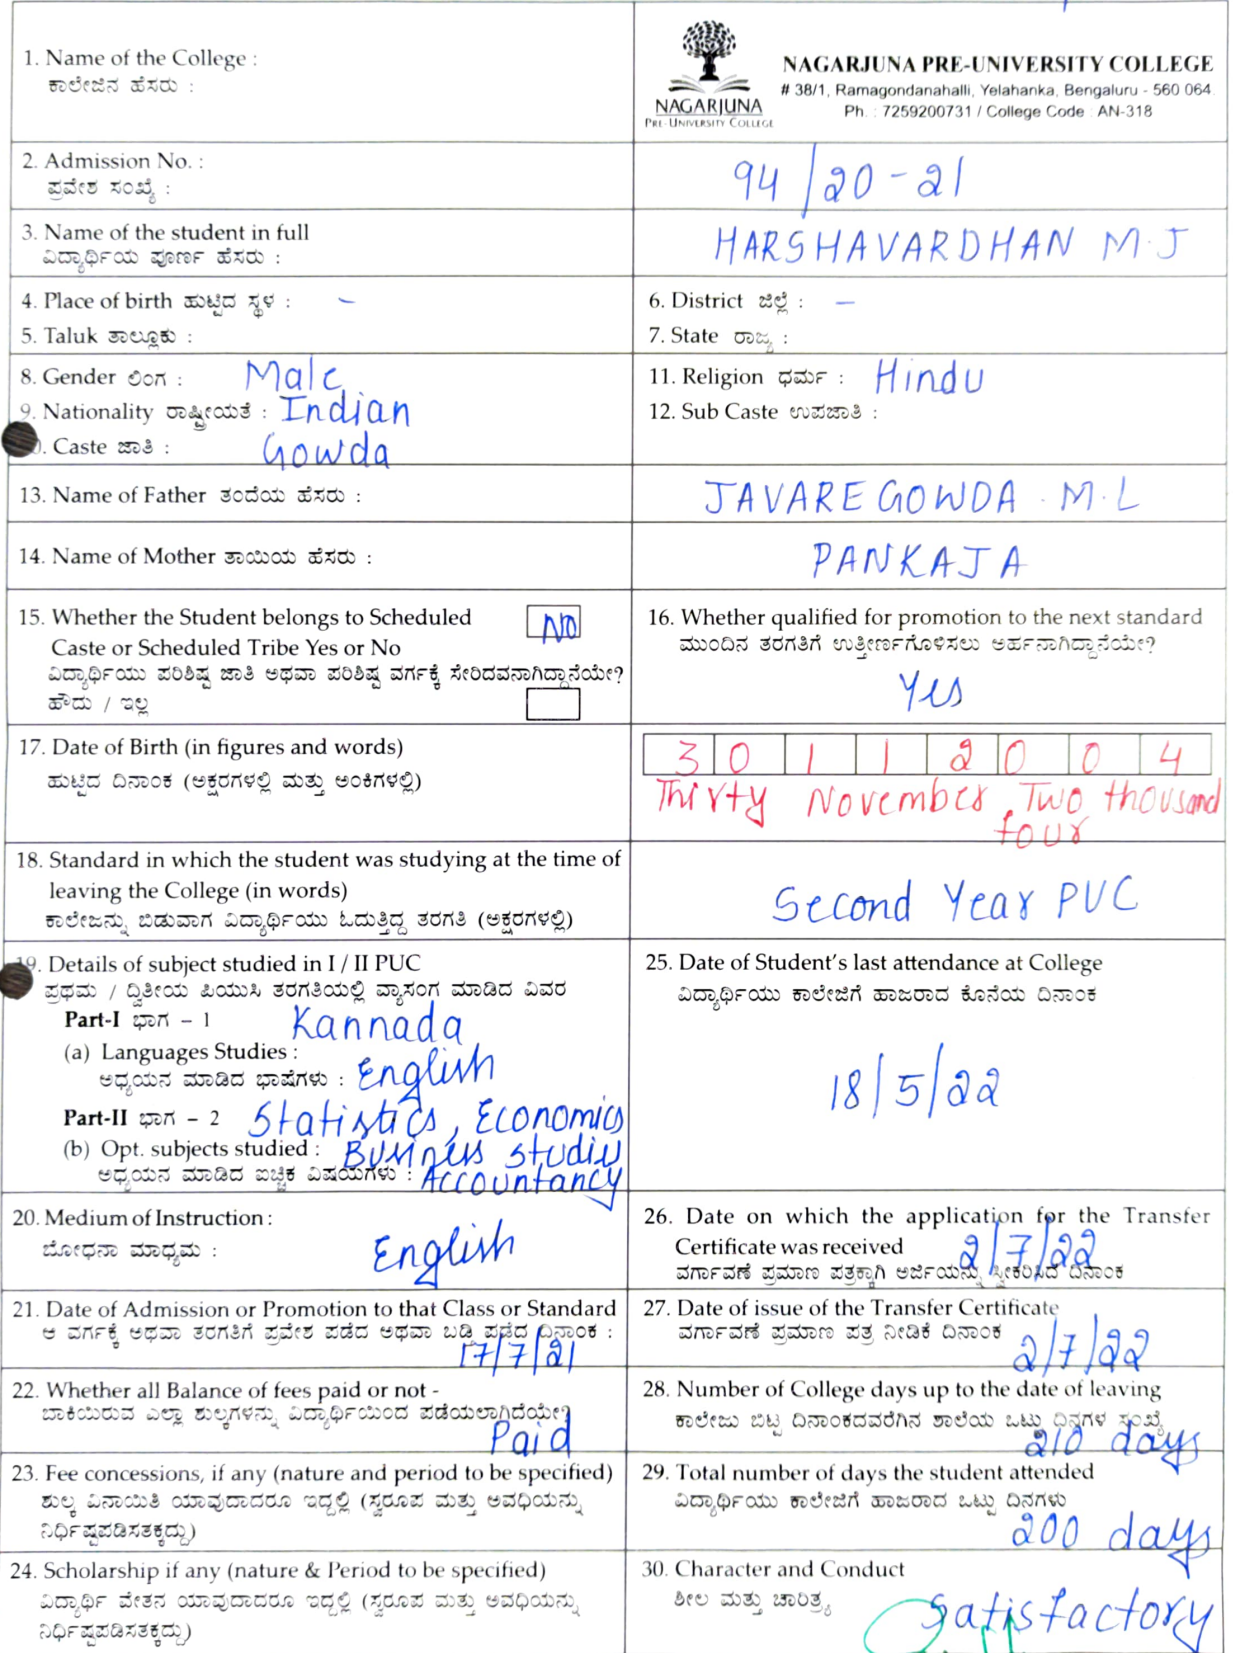 1. Name of the College :
ಕಾಲೇಜಿನ ಹೆಸರು :
NAGARJUNA
PRE-UNIVERSITY COLLEGE
NAGARJUNA PRE-UNIVERSITY COLLEGE
# 38/1, Ramagondanahalli, Yelahanka, Bengaluru - 560 064.
Ph. : 7259200731 / College Code : AN-318
2. Admission No. :
ಪ್ರವೇಶ ಸಂಖ್ಯೆ :
94/20-21
3. Name of the student in full
ವಿದ್ಯಾರ್ಥಿಯ ಪೂರ್ಣ ಹೆಸರು :
HARSHAVARDHAN M.J
4. Place of birth ಹುಟ್ಟಿದ ಸ್ಥಳ : -
6. District ಜಿಲ್ಲೆ : -
5. Taluk ತಾಲ್ಲೂಕು :
7. State ರಾಜ್ಯ :
8. Gender ಲಿಂಗ : Male
11. Religion ಧರ್ಮ : Hindu
9. Nationality ರಾಷ್ಟ್ರೀಯತೆ : Indian
12. Sub Caste ಉಪಜಾತಿ :
. Caste ಜಾತಿ : Gowda
13. Name of Father ತಂದೆಯ ಹೆಸರು :
JAVARE GOWDA . M.L
14. Name of Mother ತಾಯಿಯ ಹೆಸರು :
PANKAJA
15. Whether the Student belongs to Scheduled
Caste or Scheduled Tribe Yes or No
NO
ವಿದ್ಯಾರ್ಥಿಯು ಪರಿಶಿಷ್ಟ ಜಾತಿ ಅಥವಾ ಪರಿಶಿಷ್ಟ ವರ್ಗಕ್ಕೆ ಸೇರಿದವನಾಗಿದ್ದಾನೆಯೇ?
ಹೌದು / ಇಲ್ಲ
16. Whether qualified for promotion to the next standard
ಮುಂದಿನ ತರಗತಿಗೆ ಉತ್ತೀರ್ಣಗೊಳಿಸಲು ಅರ್ಹನಾಗಿದ್ದಾನೆಯೇ?
Yes
17. Date of Birth (in figures and words)
ಹುಟ್ಟಿದ ದಿನಾಂಕ (ಅಕ್ಷರಗಳಲ್ಲಿ ಮತ್ತು ಅಂಕಿಗಳಲ್ಲಿ)
3 0 1 1 2 0 0 4
Thirty November, Two thousand
four
18. Standard in which the student was studying at the time of
leaving the College (in words)
ಕಾಲೇಜನ್ನು ಬಿಡುವಾಗ ವಿದ್ಯಾರ್ಥಿಯು ಓದುತ್ತಿದ್ದ ತರಗತಿ (ಅಕ್ಷರಗಳಲ್ಲಿ)
Second Year PUC
19. Details of subject studied in I / II PUC
ಪ್ರಥಮ / ದ್ವಿತೀಯ ಪಿಯುಸಿ ತರಗತಿಯಲ್ಲಿ ವ್ಯಾಸಂಗ ಮಾಡಿದ ವಿವರ
Part-I ಭಾಗ - 1 Kannada
(a) Languages Studies :
ಅಧ್ಯಯನ ಮಾಡಿದ ಭಾಷೆಗಳು : English
Part-II ಭಾಗ - 2 Statistics, Economics
(b) Opt. subjects studied : Business studies
ಅಧ್ಯಯನ ಮಾಡಿದ ಐಚ್ಛಿಕ ವಿಷಯಗಳು : Accountancy
25. Date of Student's last attendance at College
ವಿದ್ಯಾರ್ಥಿಯು ಕಾಲೇಜಿಗೆ ಹಾಜರಾದ ಕೊನೆಯ ದಿನಾಂಕ
18/5/22
20. Medium of Instruction :
ಬೋಧನಾ ಮಾಧ್ಯಮ :
English
26. Date on which the application for the Transfer
Certificate was received 2/7/22
ವರ್ಗಾವಣೆ ಪ್ರಮಾಣ ಪತ್ರಕ್ಕಾಗಿ ಅರ್ಜಿಯನ್ನು ಸ್ವೀಕರಿಸಿದ ದಿನಾಂಕ
21. Date of Admission or Promotion to that Class or Standard
ಆ ವರ್ಗಕ್ಕೆ ಅಥವಾ ತರಗತಿಗೆ ಪ್ರವೇಶ ಪಡೆದ ಅಥವಾ ಬಡ್ತಿ ಪಡೆದ ದಿನಾಂಕ :
17/7/21
27. Date of issue of the Transfer Certificate
ವರ್ಗಾವಣೆ ಪ್ರಮಾಣ ಪತ್ರ ನೀಡಿಕೆ ದಿನಾಂಕ
2/7/22
22. Whether all Balance of fees paid or not -
ಬಾಕಿಯಿರುವ ಎಲ್ಲಾ ಶುಲ್ಕಗಳನ್ನು ವಿದ್ಯಾರ್ಥಿಯಿಂದ ಪಡೆಯಲಾಗಿದೆಯೇ?
Paid
28. Number of College days up to the date of leaving
ಕಾಲೇಜು ಬಿಟ್ಟ ದಿನಾಂಕದವರೆಗಿನ ಶಾಲೆಯ ಒಟ್ಟು ದಿನಗಳ ಸಂಖ್ಯೆ
210 days
23. Fee concessions, if any (nature and period to be specified)
ಶುಲ್ಕ ವಿನಾಯಿತಿ ಯಾವುದಾದರೂ ಇದ್ದಲ್ಲಿ (ಸ್ವರೂಪ ಮತ್ತು ಅವಧಿಯನ್ನು
ನಿರ್ಧಿಷ್ಟಪಡಿಸತಕ್ಕದ್ದು)
29. Total number of days the student attended
ವಿದ್ಯಾರ್ಥಿಯು ಕಾಲೇಜಿಗೆ ಹಾಜರಾದ ಒಟ್ಟು ದಿನಗಳು
200 days
24. Scholarship if any (nature & Period to be specified)
ವಿದ್ಯಾರ್ಥಿ ವೇತನ ಯಾವುದಾದರೂ ಇದ್ದಲ್ಲಿ (ಸ್ವರೂಪ ಮತ್ತು ಅವಧಿಯನ್ನು
ನಿರ್ಧಿಷ್ಟಪಡಿಸತಕ್ಕದ್ದು)
30. Character and Conduct
ಶೀಲ ಮತ್ತು ಚಾರಿತ್ರ್ಯ
Satisfactory